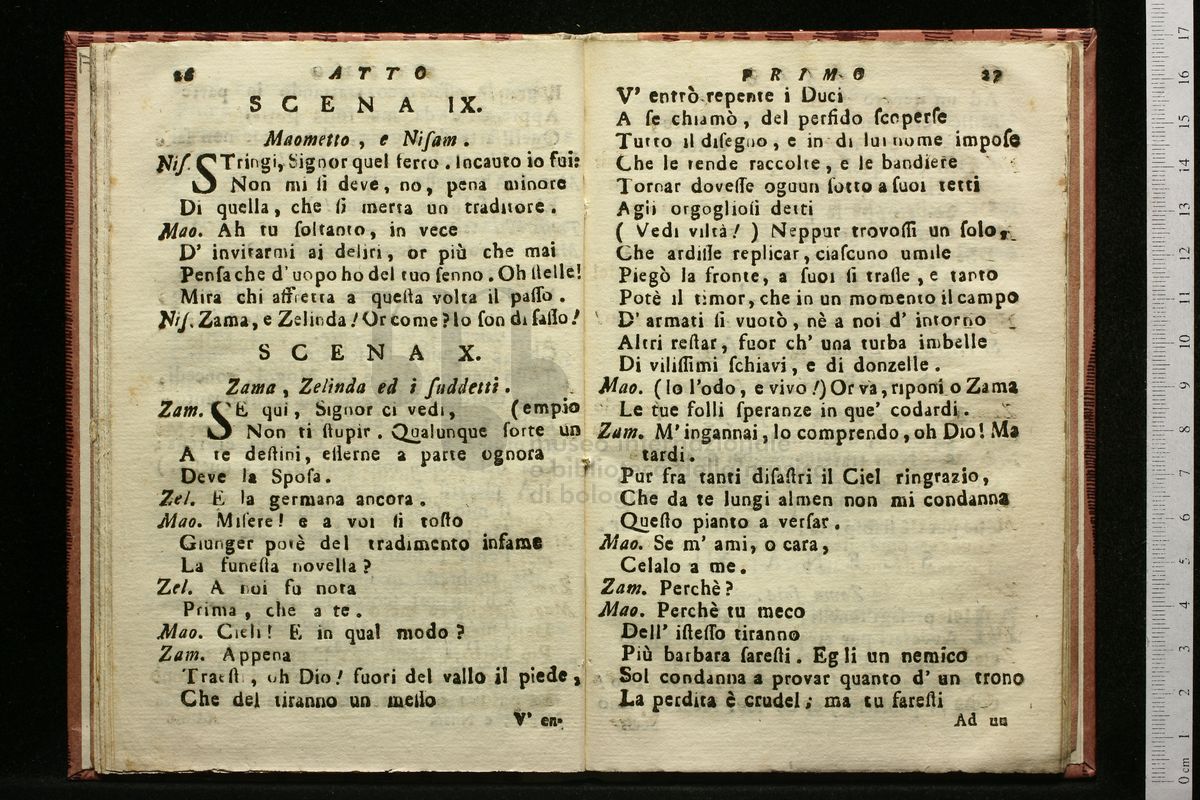 26 ATTO
SCENA IX.
Maometto, e Niſam.
Niſ. STringi, Signor quel ferro. Incauto io fui:
Non mi ſi deve, no, pena minore
Di quella, che ſi merta un traditore.
Mao. Ah tu ſoltanto, in vece
D' invitarmi ai deliri, or più che mai
Penſa che d' uopo ho del tuo ſenno. Oh ſtelle!
Mira chi affretta a queſta volta il paſſo.
Niſ. Zama, e Zelinda! Or come? Io ſon di ſaſſo!
SCENA X.
Zama, Zelinda ed i ſuddetti.
Zam. SE qui, Signor ci vedi, (empio
Non ti ſtupir. Qualunque ſorte un
A te deſtini, eſſerne a parte ognora
Deve la Spoſa.
Zel. E la germana ancora.
Mao. Miſere! e a voi ſi toſto
Giunger potè del tradimento infame
La funeſta novella?
Zel. A noi fu nota
Prima, che a te.
Mao. Cieli! E in qual modo?
Zam. Appena
Traeſti, oh Dio! fuori del vallo il piede,
Che del tiranno un meſſo
V' en-
PRIMO 27
V' entrò repente i Duci
A ſe chiamò, del perfido ſcoperſe
Tutto il diſegno, e in di lui nome impoſe
Che le tende raccolte, e le bandiere
Tornar doveſſe ognun ſotto a ſuoi tetti
Agli orgoglioſi detti
( Vedi viltà! ) Neppur trovoſſi un ſolo,
Che ardiſſe replicar, ciaſcuno umile
Piegò la fronte, a ſuoi ſi traſſe, e tanto
Potè il timor, che in un momento il campo
D' armati ſi vuotò, nè a noi d' intorno
Altri reſtar, fuor ch' una turba imbelle
Di viliſſimi ſchiavi, e di donzelle.
Mao. (Io l'odo, e vivo!) Or va, riponi o Zama
Le tue folli ſperanze in que' codardi.
Zam. M' ingannai, lo comprendo, oh Dio! Ma
tardi.
Pur fra tanti diſaſtri il Ciel ringrazio,
Che da te lungi almen non mi condanna
Queſto pianto a verſar.
Mao. Se m' ami, o cara,
Celalo a me.
Zam. Perchè?
Mao. Perchè tu meco
Dell' iſteſſo tiranno
Più barbara ſareſti. Egli un nemico
Sol condanna a provar quanto d' un trono
La perdita è crudel; ma tu fareſti
Ad un
0 cm 1 2 3 4 5 6 7 8 9 10 11 12 13 14 15 16 17